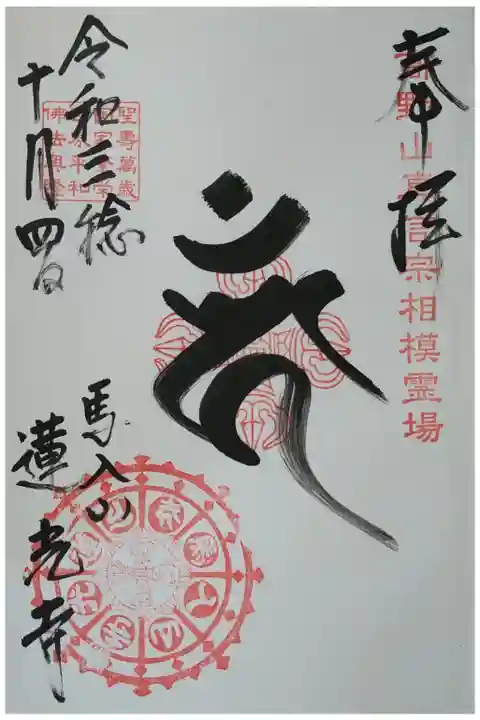 奉拝
高野山真言宗相模霊場
聖壽萬歳
佛法興隆
令和三稔
十月四日
馬入山
蓮光寺